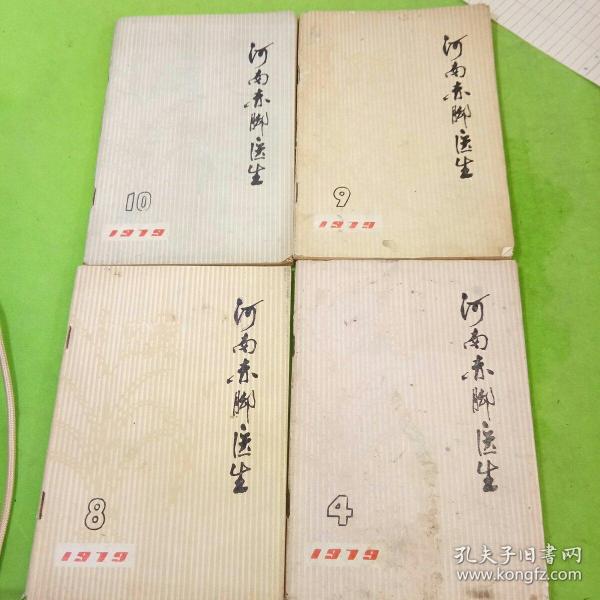 河南赤脚医生
10
1979
河南赤脚医生
9
1979
河南赤脚医生
8
1979
河南赤脚医生
4
1979
孔夫子旧书网
www.kongfz.com